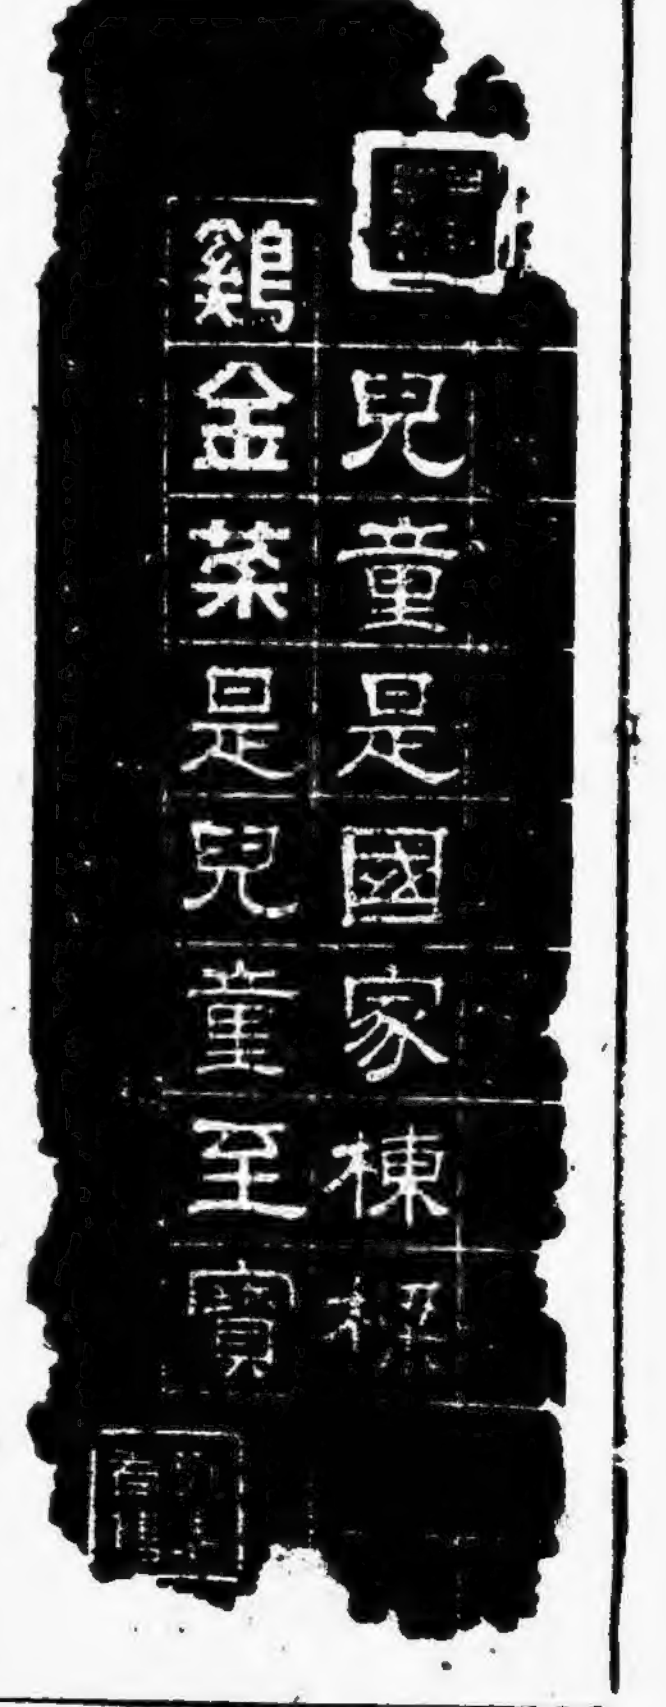 兒童是國家棟樑
鷄金菜是兒童至寶